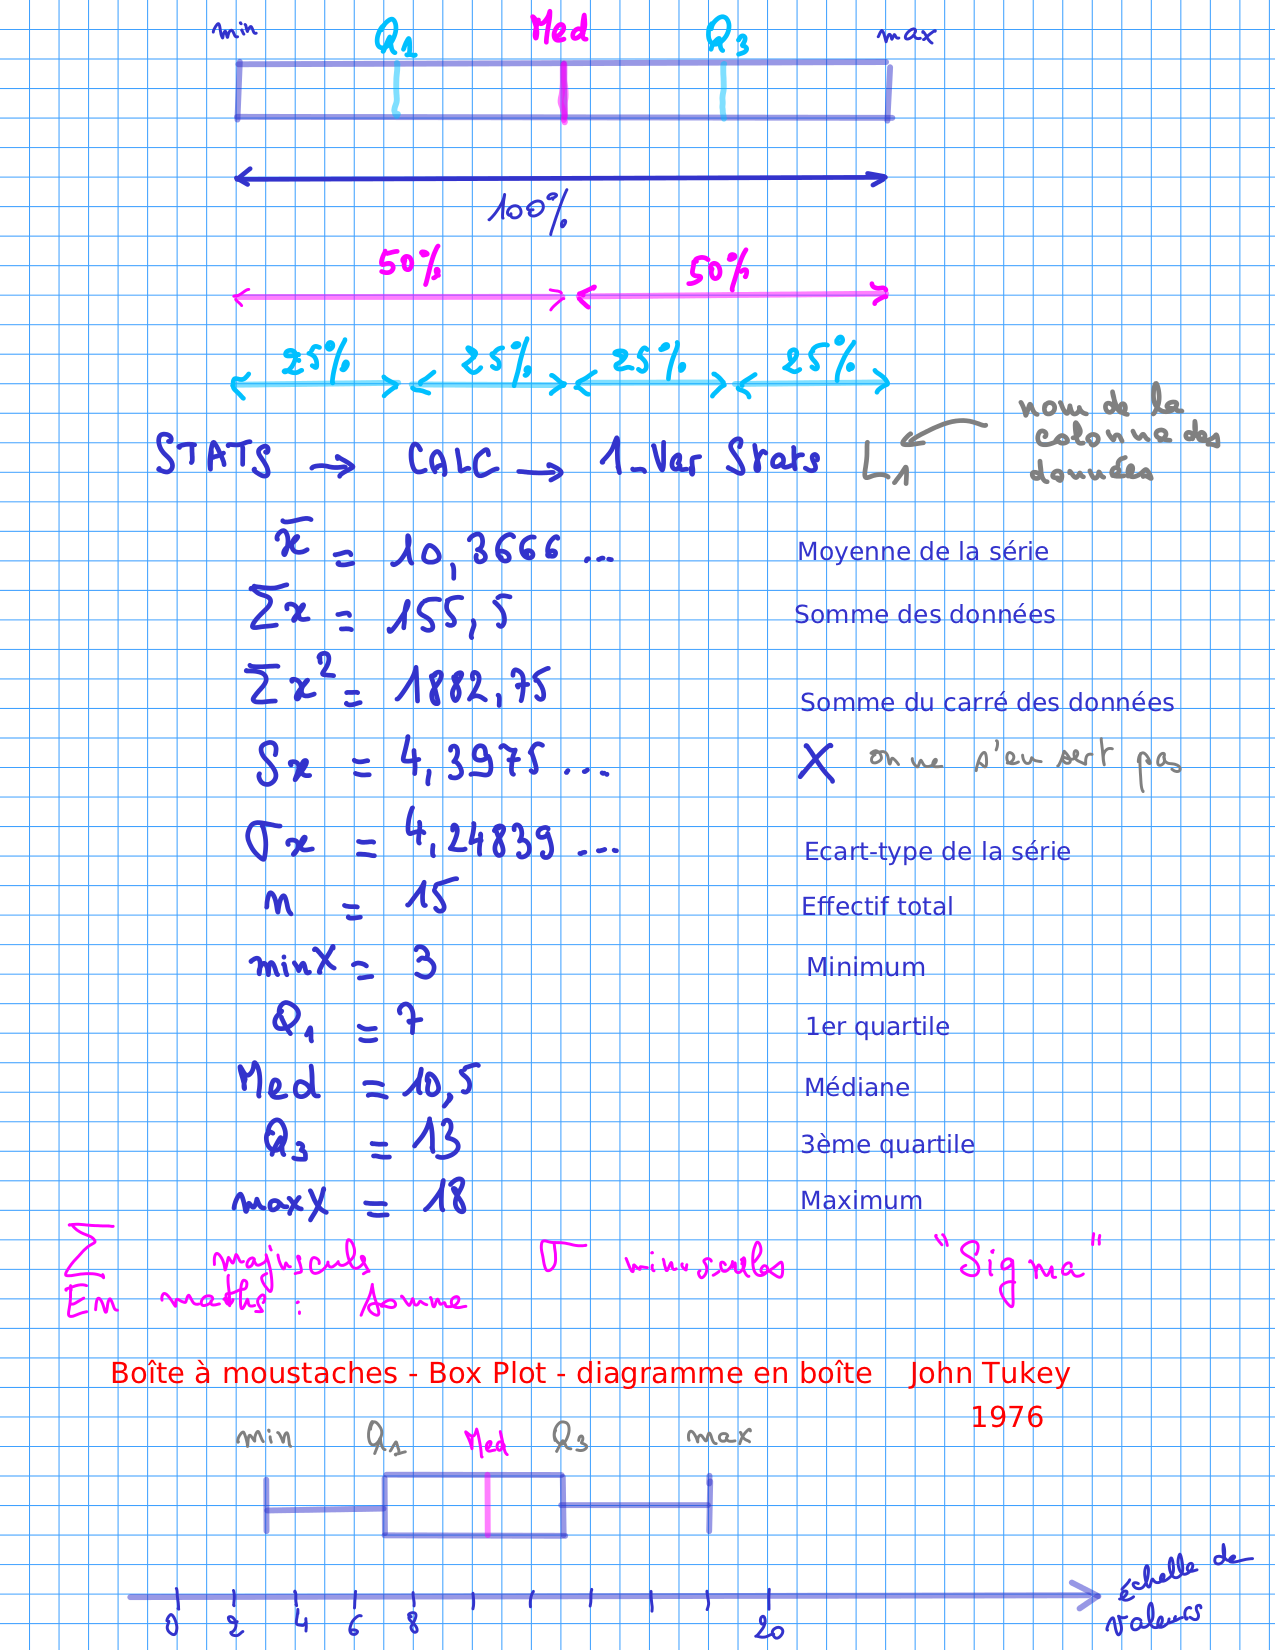 min Q1 Med Q3 max
100%
50% 50%
25% 25% 25% 25%
nom de la
colonne des
données
STATS → CALC → 1_Var Stats L1
x̄ = 10,3666 ... Moyenne de la série
Σx = 155,5 Somme des données
Σx² = 1882,75 Somme du carré des données
Sx = 4,3975 ... X on ne s'en sert pas
σx = 4,24839 ... Ecart-type de la série
n = 15 Effectif total
minX = 3 Minimum
Q1 = 7 1er quartile
Med = 10,5 Médiane
Q3 = 13 3ème quartile
maxX = 18 Maximum
Σ majuscule σ minuscules "Sigma"
En maths : somme
Boîte à moustaches - Box Plot - diagramme en boîte John Tukey
1976
min Q1 Med Q3 max
échelle de
valeurs
0 2 4 6 8 20